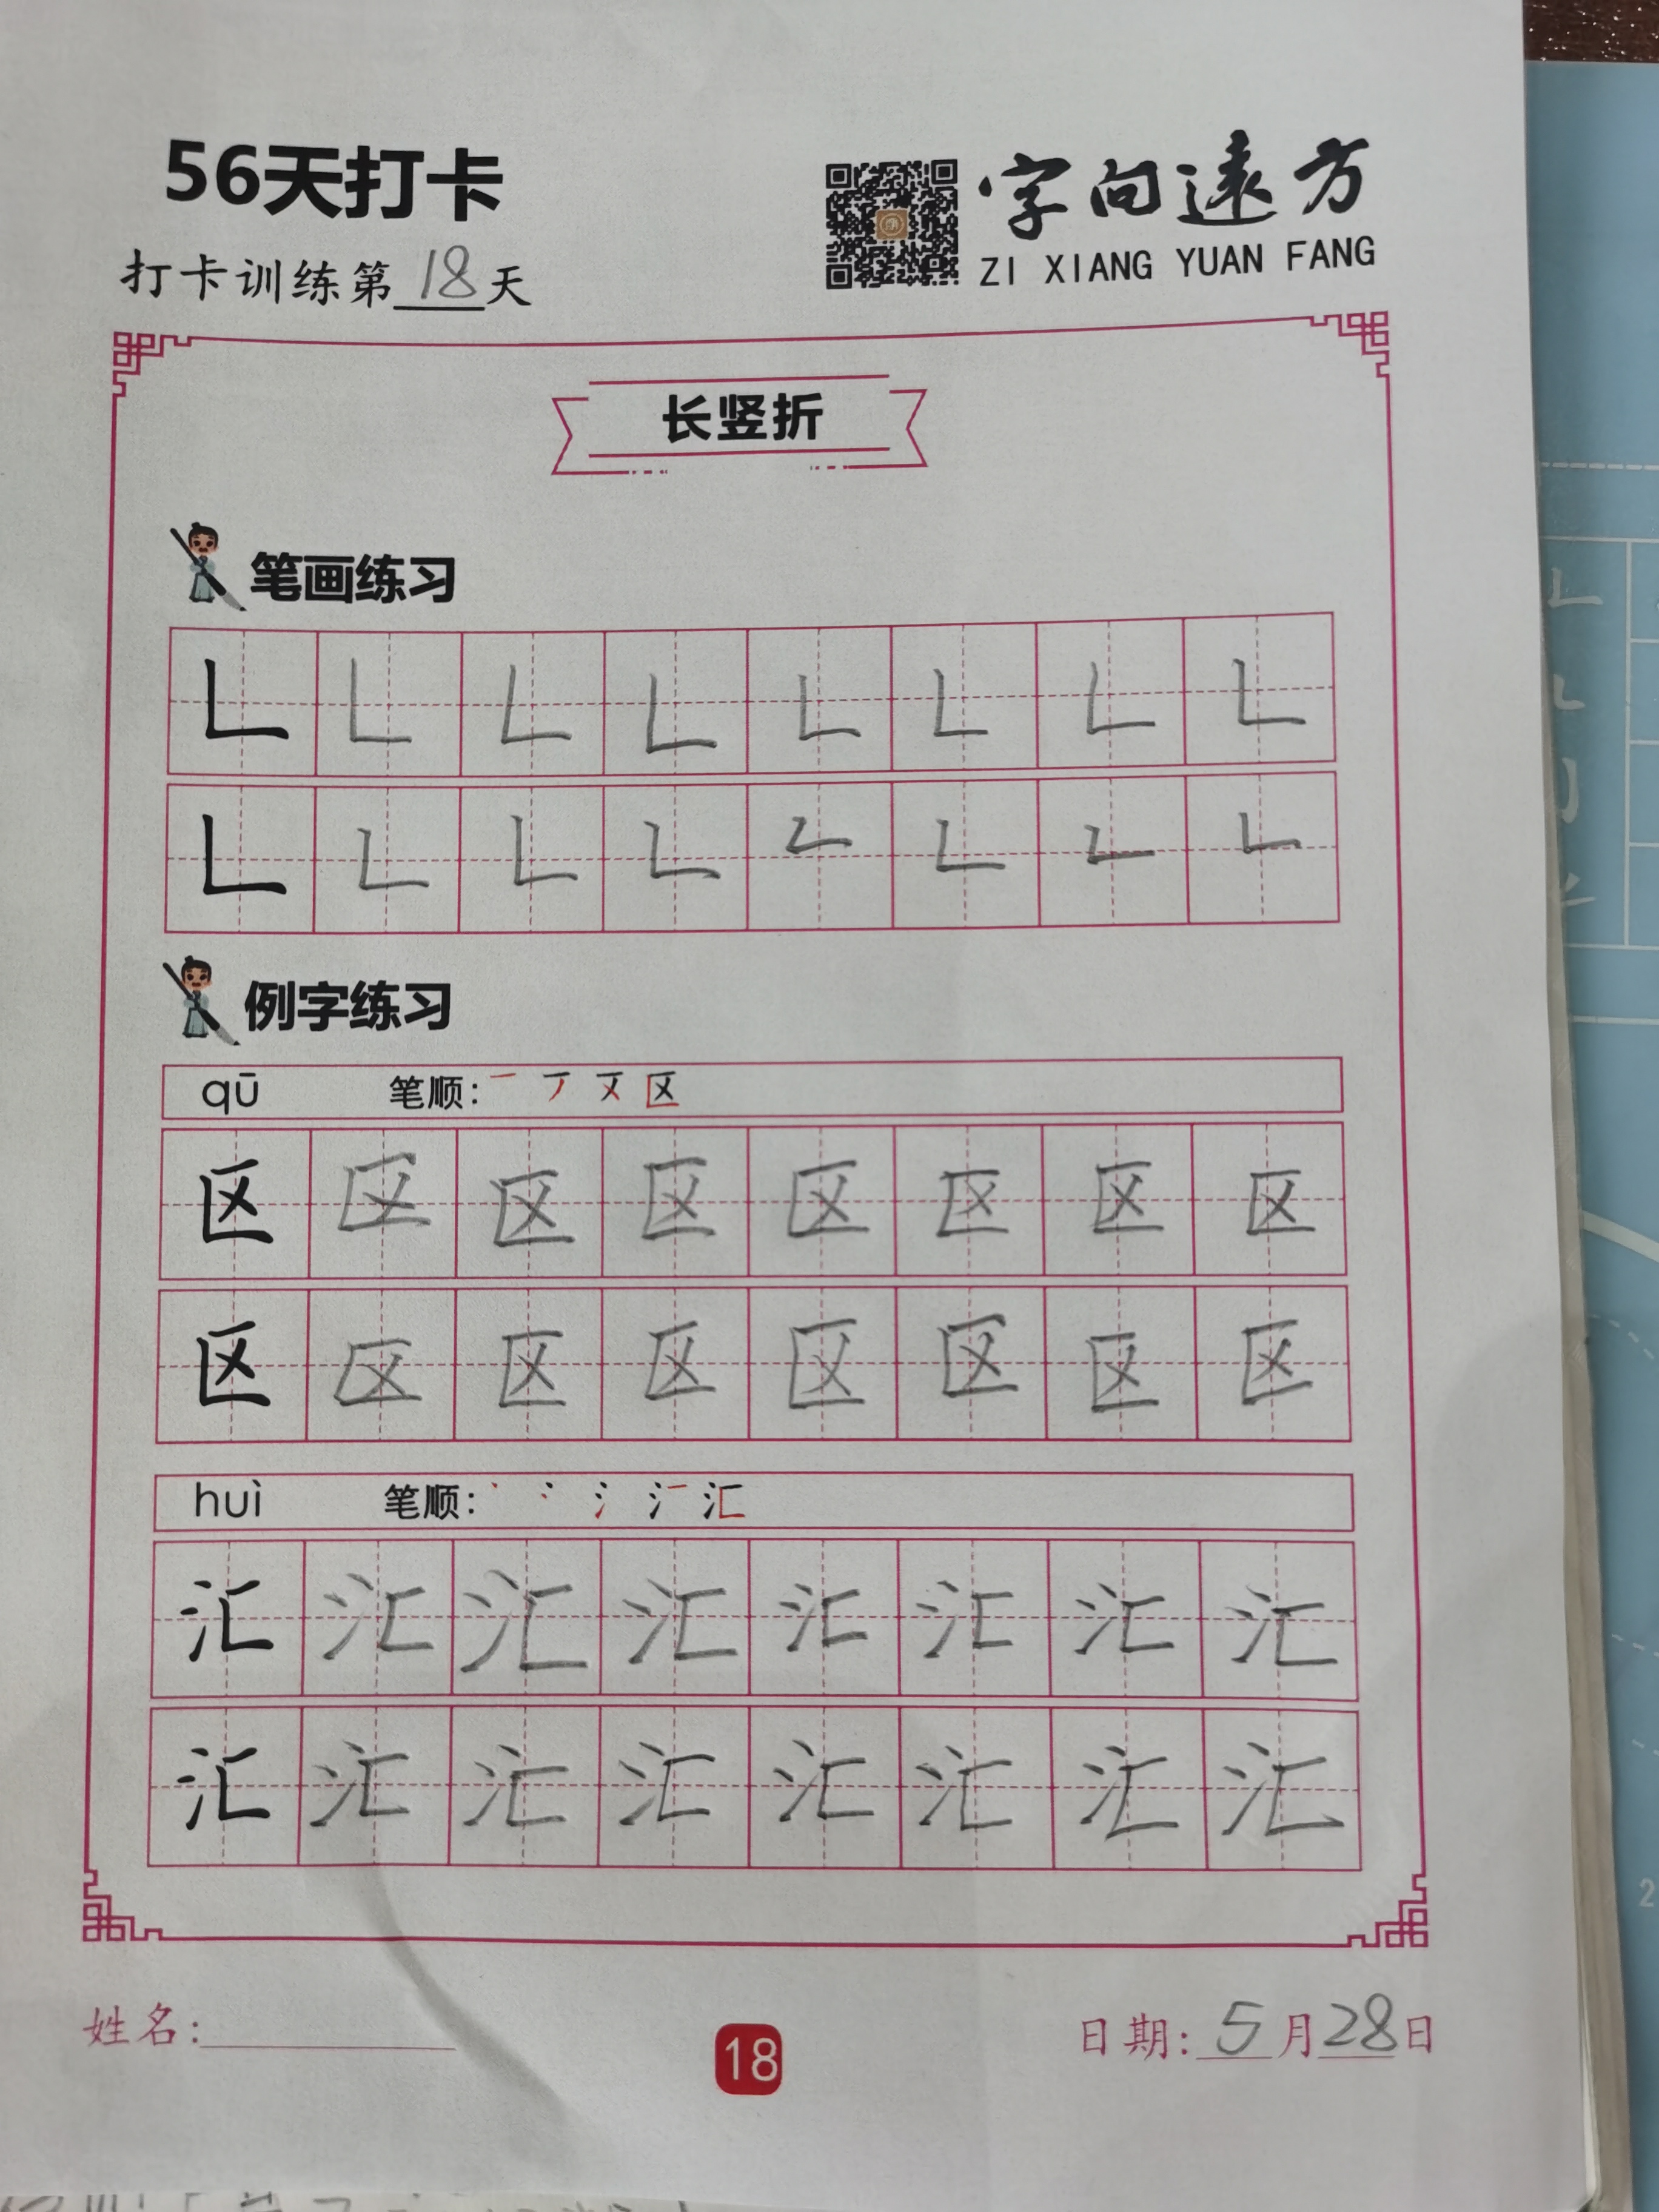 56天打卡
字向遠方
ZI XIANG YUAN FANG
打卡训练第18天
长竖折
笔画练习
𠃊 𠃊 𠃊 𠃊 𠃊 𠃊 𠃊 𠃊
𠃊 𠃊 𠃊 𠃊 𠃊 𠃊 𠃊 𠃊
例字练习
qū 笔顺:
区 区 区 区 区 区 区 区
区 区 区 区 区 区 区 区
huì 笔顺:
汇 汇 汇 汇 汇 汇 汇 汇
汇 汇 汇 汇 汇 汇 汇 汇
姓名:
18
日期: 5月28日